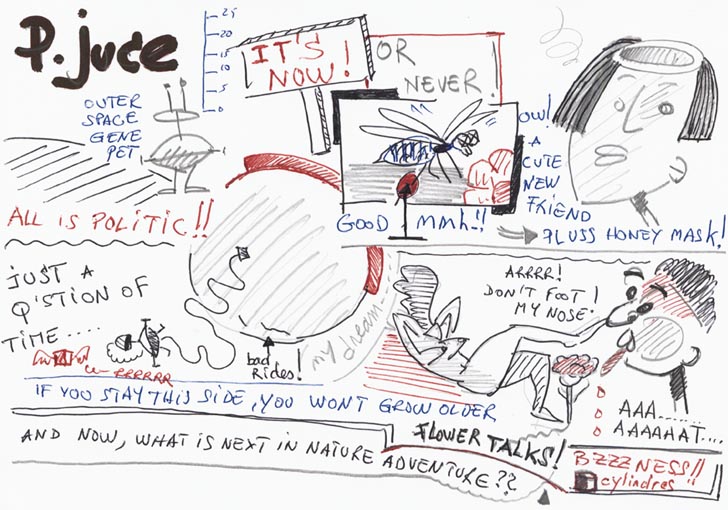 P. juce
25
20
15
10
5
0
IT'S
NOW!
OR
NEVER!
OUTER
SPACE
GENE
PET
OW!
A
CUTE
NEW
FRIEND
ALL IS POLITIC!!
GOOD MMh..!!
PLUSS HONEY MASK!
JUST A
Q'STION OF
TIME.....
RRRRRR
bad
RIDES!
my dream--
ARRRR!
DON'T FOOT !
MY NOSE.
IF YOU STAY THIS SIDE, YOU WONT GROW OLDER
AAA......
AAAAHAT...
FLOWER TALKS!
AND NOW, WHAT IS NEXT IN NATURE ADVENTURE??
BZZZNESS!!
cylindres"